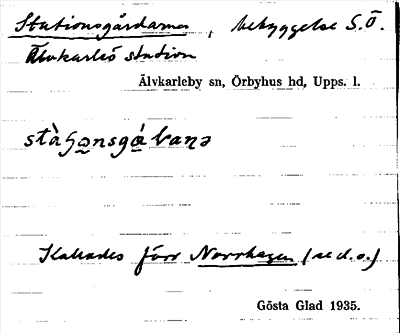 Stationsgårdarna, bebyggelse S.Ö.
Älvkarleö station
Älvkarleby sn, Örbyhus hd, Upps. l.
Kallades förr Norrhagen (se d.o.)
Gösta Glad 1935.